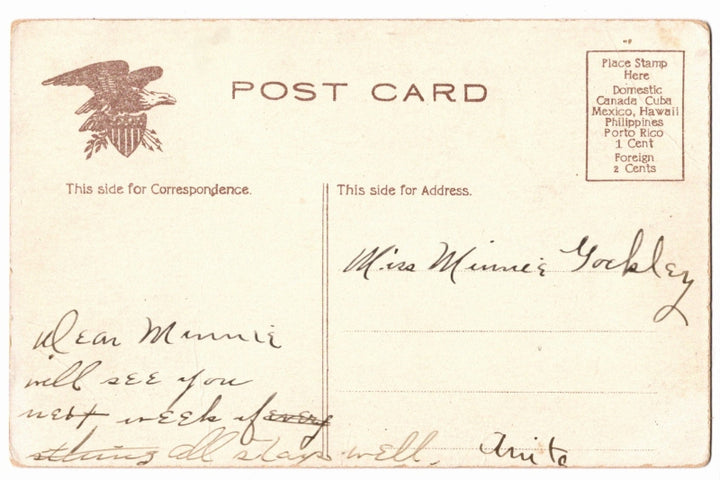 POST CARD
Place Stamp
Here
Domestic
Canada Cuba
Mexico, Hawaii
Philippines
Porto Rico
1 Cent
Foreign
2 Cents
This side for Correspondence.
This side for Address.
Miss Minnie Gockley
Dear Minnie
will see you
next week if every
thing all stays well.
Anita